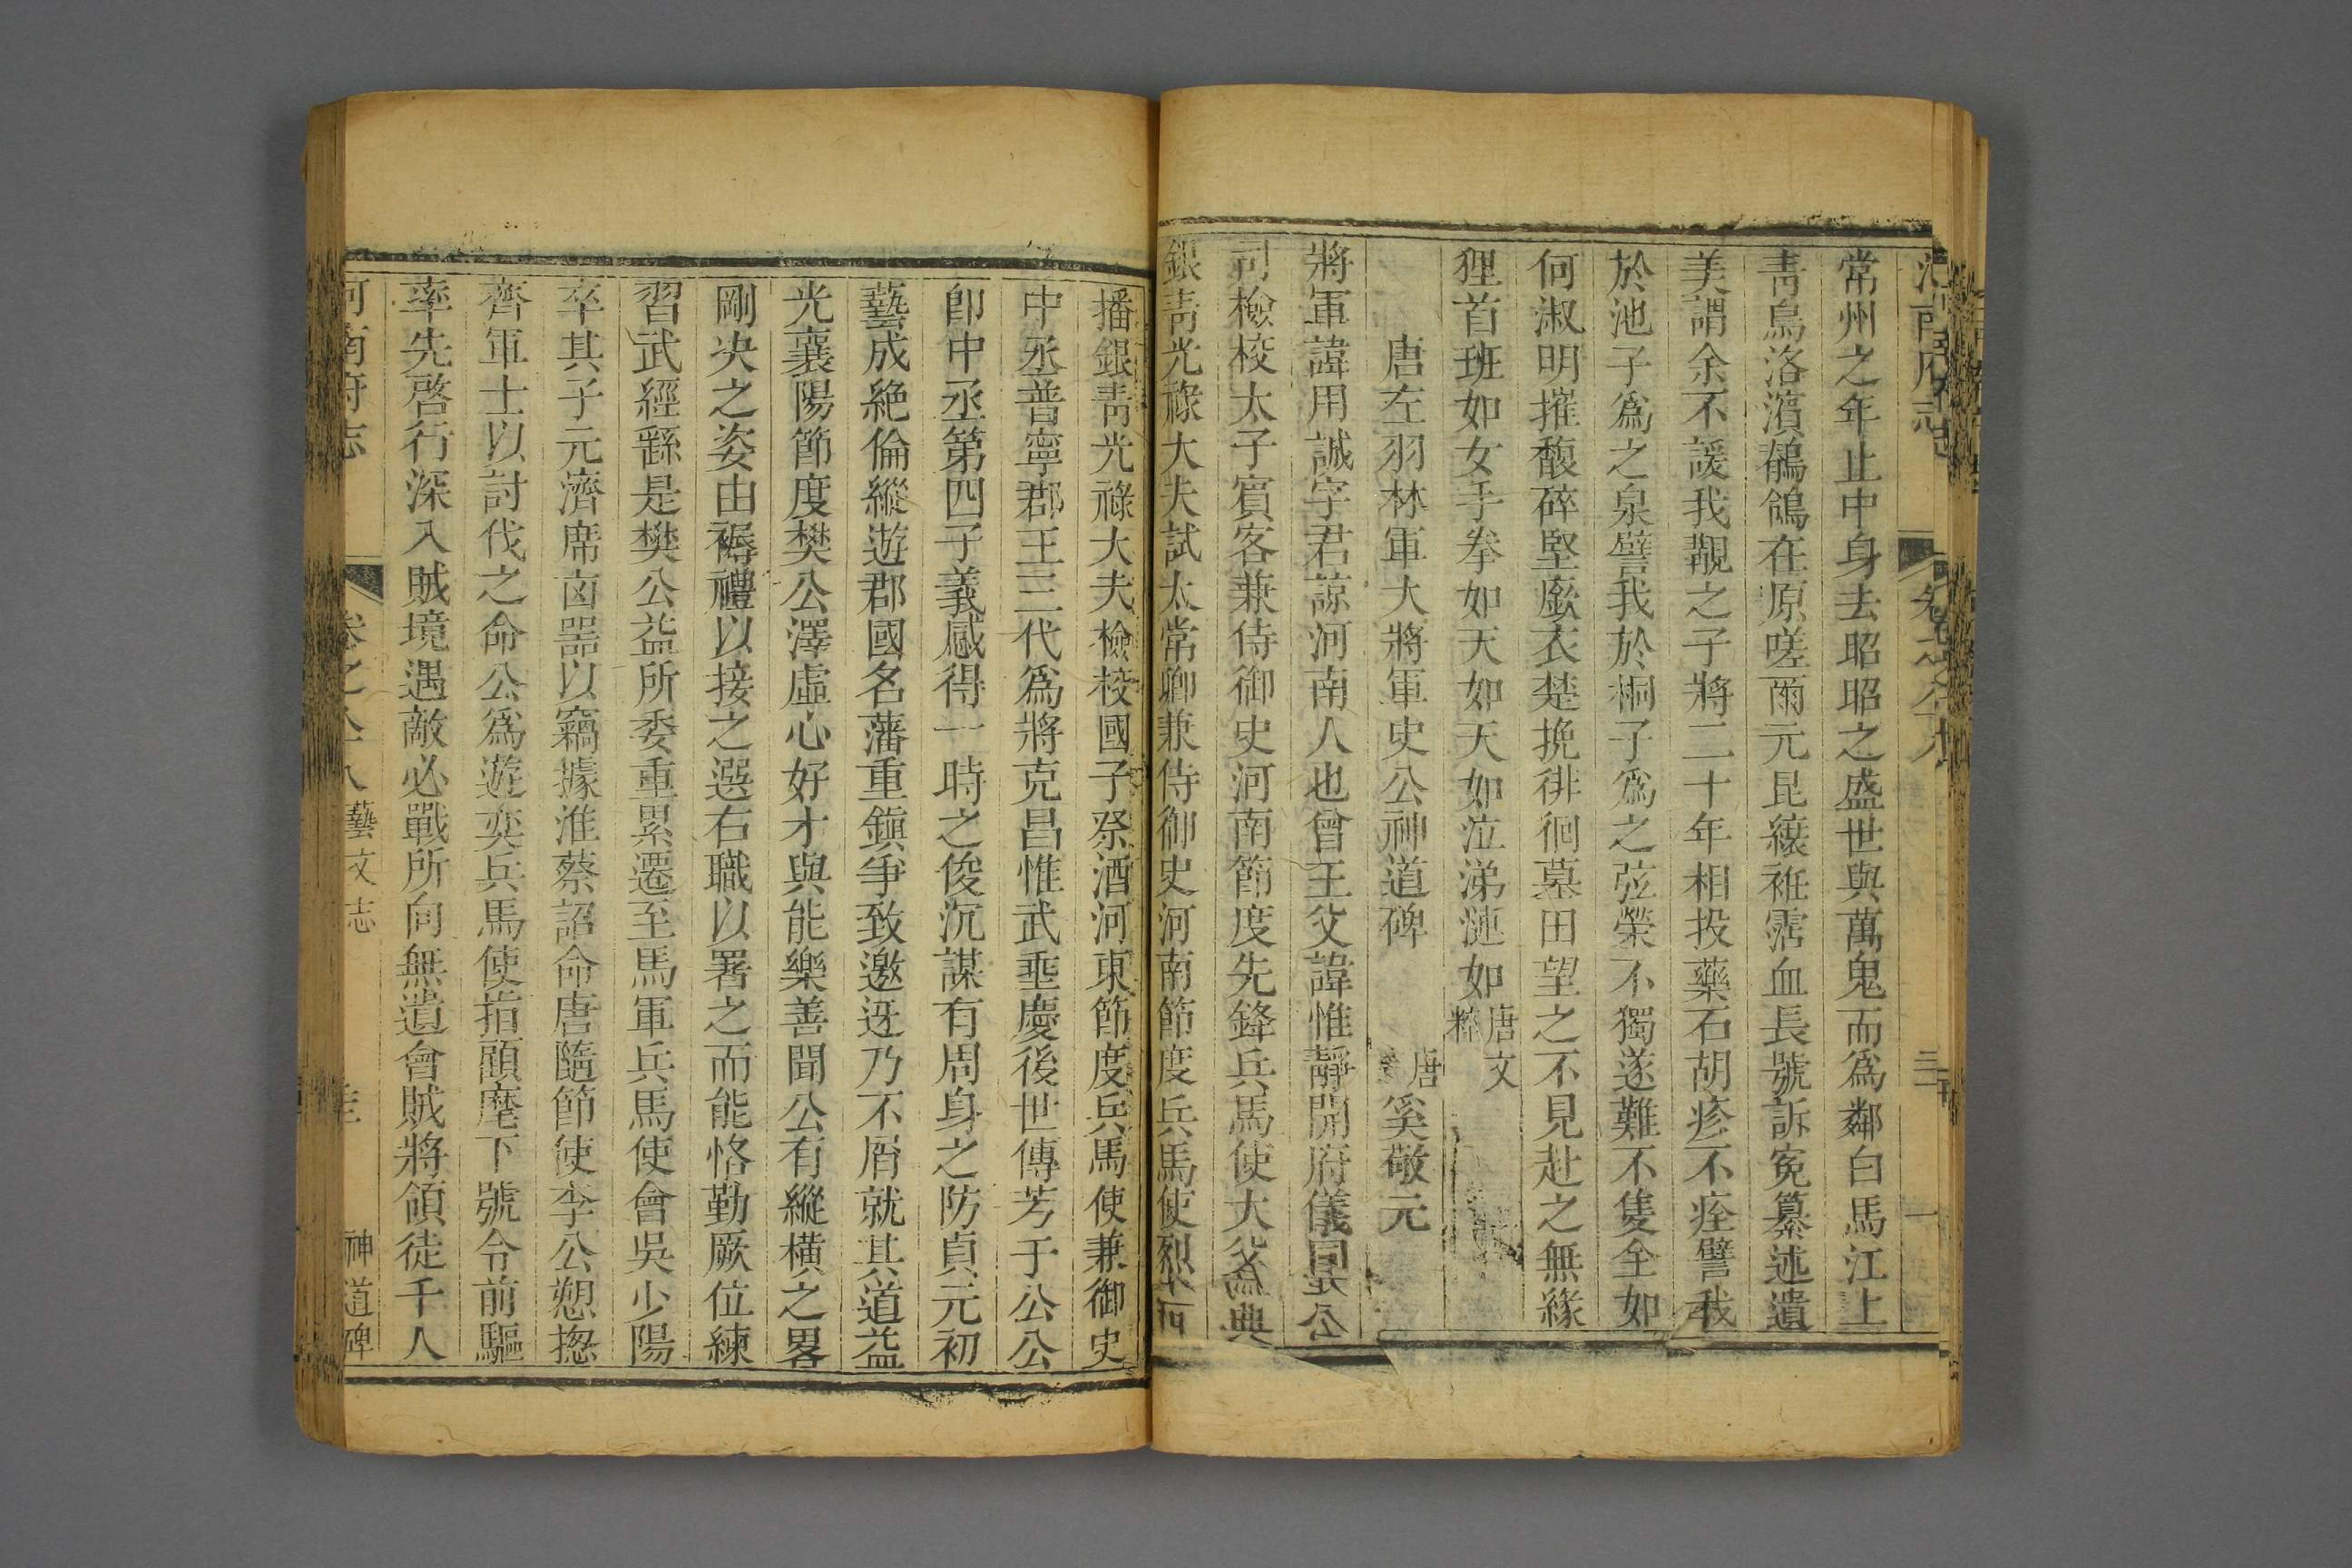 河南府志
常州之年止中身去昭昭之盛世與萬鬼而爲鄰白馬江上
靑鳥洛濱鶺鴒在原嗟爾元昆縗袵霑血長號訴寃纂述遺
美謂余不諼我覯之子將二十年相投藥石胡疹不痊譬我
於池子爲之泉譬我於桐子爲之弦榮不獨遂難不隻全如
何淑明摧馥碎堅廞衣楚挽徘徊墓田望之不見赴之無緣
狸首班如女手拳如天如天如泣涕漣如唐文粹
唐左羽林軍大將軍史公神道碑
唐 奚敬元
將軍諱用誠字君諒河南人也曾王父諱惟靜開府儀同 公
司檢校太子賓客兼侍御史河南節度先鋒兵馬使大父 典
銀靑光祿大夫試太常卿兼侍御史河南節度兵馬使烈考
播銀靑光祿大夫檢校國子祭酒河東節度兵馬使兼御史
中丞普寧郡王三代爲將克昌惟武垂慶後世傳芳于公公
卽中丞第四子義感得一時之俊沉謀有周身之防貞元初
藝成絶倫縱遊郡國名藩重鎭爭致邀迓乃不屑就其道益
光襄陽節度樊公澤虛心好才與能樂善聞公有縱橫之畧
剛决之姿由褥禮以接之選右職以署之而能恪勤厥位練
習武經繇是樊公益所委重累遷至馬軍兵馬使會吳少陽
卒其子元濟席凶器以竊據淮蔡詔命唐隨節使李公愬揔
齊軍士以討伐之命公爲遊奕兵馬使指顧麾下號令前驅
率先啓行深入賊境遇敵必戰所向無遺會賊將領徒千人
河南府志
卷之八十八
藝文志
神道碑